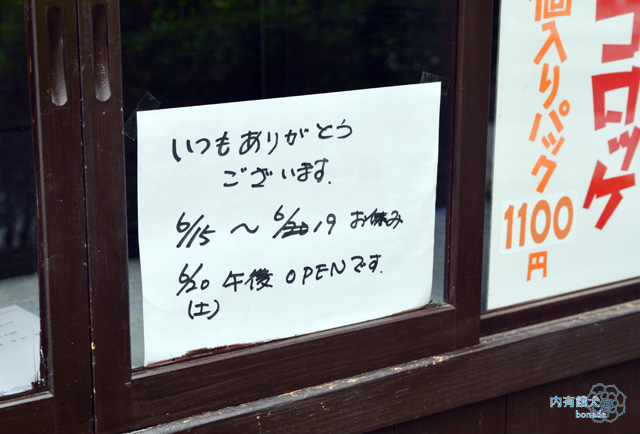 いつもありがとう
ございます.
6/15 ～ 6/19 お休み
6/20 午後 OPENです.
(土)
コロッケ
個入りパック
1100
円
内有餓犬
bonade